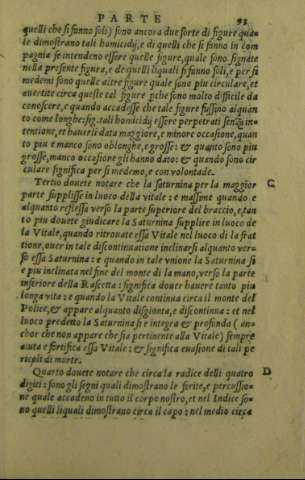 PARTE 93
quelli che si fanno soli) sono ancora due sorte di figure qua
le dimostrano tali homicidij, e di quelli che si fanno in com
pagnia se intendeno essere quelle figure, quale sono signate
nella presente figura, e de quelli liquali si fanno soli, e per si
medemi sono quelle altre figure quale sono piu circulare, et
auertite circa queste tal figure pche sono molto difficile da
conoscere, e quando accadesse che tale figure fussino alquan
to come longhe: sig. tali homicidij essere perpetrati senza in
tentione, et hauerli data maggiore, e minore occasione, quan
to piu e manco sono oblonghe, e grosse: & quanto sono piu
grosse, manco occasione gli hanno dato: & quando sono cir
culare significa per si medemo, e con volontade.
Tertio douete notare che la saturnina per la maggior C
parte supplisse in luoco della vitale: e massime quando e
alquanto reflessa verso la parte superiore del braccio, e tan
to piu douete giudicare la Saturnina supplire in luoco de
la Vitale, quando ritrouate essa Vitale nel luoco di la frat
tione, ouer in tale discontinuatione inclinarsi alquanto ver-
so essa Saturnina: e quando in tale vnione la Saturnina si
e piu inclinata nel fine del monte di la mano, verso la parte
inferiore della Rascetta: significa douer hauere tanto piu
longa vita: e quando la Vitale continua circa il monte del
Police, & appare alquanto disgionta, e discontinua: et nel
luoco predetto la Saturnina si e integra & profonda ( an-
chor che non appare che sia pertinente alla Vitale) sempre
aiuta e fortifica essa Vitale: & significa euasione di tali pe
ricoli di morte.
Quarto douete notare che circa la radice delli quatro D
digiti: sono gli segni quali dimostrano le ferite, e percussio-
ne quale accadeno in tutto il corpo nostro, et nel Indice so-
no quelli liquali dimostrano circa il capo: nel medio circa